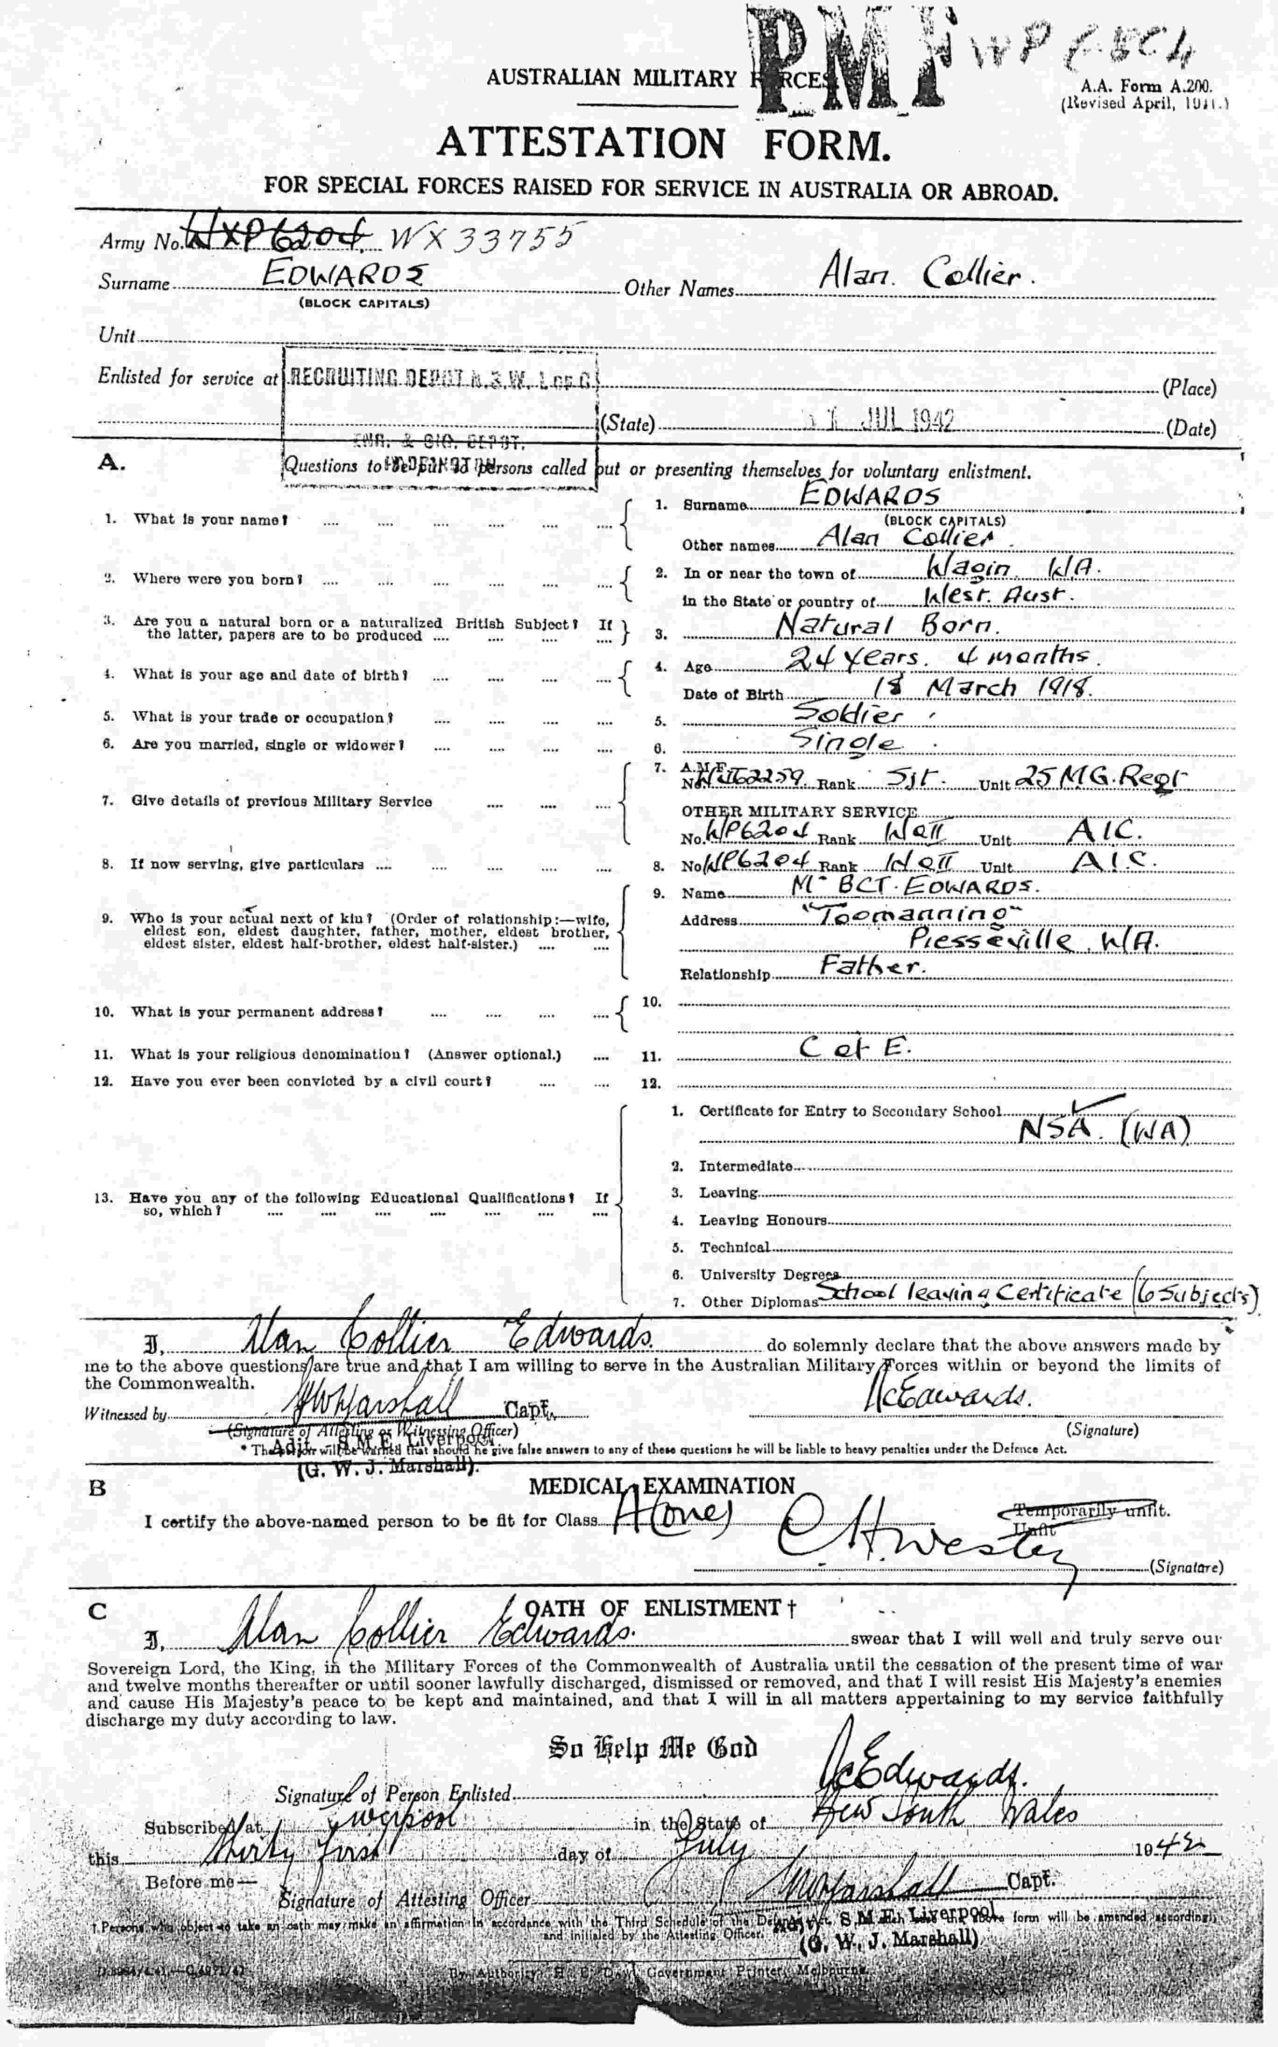 PMF WP
AUSTRALIAN MILITARY FORCES
A.A. Form A.200.
(Revised April, 1941.)
ATTESTATION FORM.
FOR SPECIAL FORCES RAISED FOR SERVICE IN AUSTRALIA OR ABROAD.
Army No. WXP6204 WX33755
Surname EDWARDS Other Names Alan Collier.
(BLOCK CAPITALS)
Unit
Enlisted for service at RECRUITING DEPOT N.S.W. L of C (Place)
(State) 31 JUL 1942 (Date)
ENG. & SIG. DEPOT.
A. Questions to be put to persons called out or presenting themselves for voluntary enlistment.
1. What is your name? 1. Surname EDWARDS
(BLOCK CAPITALS)
Other names Alan Collier.
2. Where were you born? 2. In or near the town of Wagin W.A.
in the State or country of West. Aust.
3. Are you a natural born or a naturalized British Subject? If
the latter, papers are to be produced 3. Natural Born.
4. What is your age and date of birth? 4. Age 24 years. 4 months.
Date of Birth 18 March 1918.
5. What is your trade or occupation? 5. Soldier.
6. Are you married, single or widower? 6. Single.
7. Give details of previous Military Service 7. A.M.F.
No. Rank Sjt. Unit 25 MG. Regt
OTHER MILITARY SERVICE
No. WP6204 Rank WOII Unit AIC.
8. If now serving, give particulars 8. No. WP6204 Rank WOII Unit AIC.
9. Who is your actual next of kin? (Order of relationship:—wife,
eldest son, eldest daughter, father, mother, eldest brother,
eldest sister, eldest half-brother, eldest half-sister.)
9. Name Mr BCT. EDWARDS.
Address "Toomanning"
Piesseville, W.A.
Relationship Father.
10. What is your permanent address? 10.
11. What is your religious denomination? (Answer optional.) 11. C of E.
12. Have you ever been convicted by a civil court? 12.
13. Have you any of the following Educational Qualifications? If
so, which?
1. Certificate for Entry to Secondary School ✓
NSA. (WA)
2. Intermediate
3. Leaving
4. Leaving Honours
5. Technical
6. University Degrees
7. Other Diplomas School leaving Certificate (6 Subjects)
I, Alan Collier Edwards. do solemnly declare that the above answers made by
me to the above questions are true and that I am willing to serve in the Australian Military Forces within or beyond the limits of
the Commonwealth.
Witnessed by GWMarshall Capt. AcEdwards.
(Signature of Attesting or Witnessing Officer) (Signature)
Adjt. S.M.E. Liverpool
* The person will be warned that should he give false answers to any of these questions he will be liable to heavy penalties under the Defence Act.
(G. W. J. Marshall).
B MEDICAL EXAMINATION
I certify the above-named person to be fit for Class A(one) Temporarily unfit.
Unfit
C.H. Wesley
(Signature)
C OATH OF ENLISTMENT †
I, Alan Collier Edwards. swear that I will well and truly serve our
Sovereign Lord, the King, in the Military Forces of the Commonwealth of Australia until the cessation of the present time of war
and twelve months thereafter or until sooner lawfully discharged, dismissed or removed, and that I will resist His Majesty's enemies
and cause His Majesty's peace to be kept and maintained, and that I will in all matters appertaining to my service faithfully
discharge my duty according to law.
So Help Me God
Signature of Person Enlisted AcEdwards.
Subscribed at Liverpool in the State of New South Wales
this thirty first day of July 1942
Before me—
Signature of Attesting Officer GWMarshall Capt.
† Persons who object to take an oath may make an affirmation in accordance with the Third Schedule of the Defence Act. form will be amended accordingly
and initialed by the Attesting Officer.
Adjt. S.M.E. Liverpool
(G. W. J. Marshall)
By Authority: Government Printer, Melbourne.